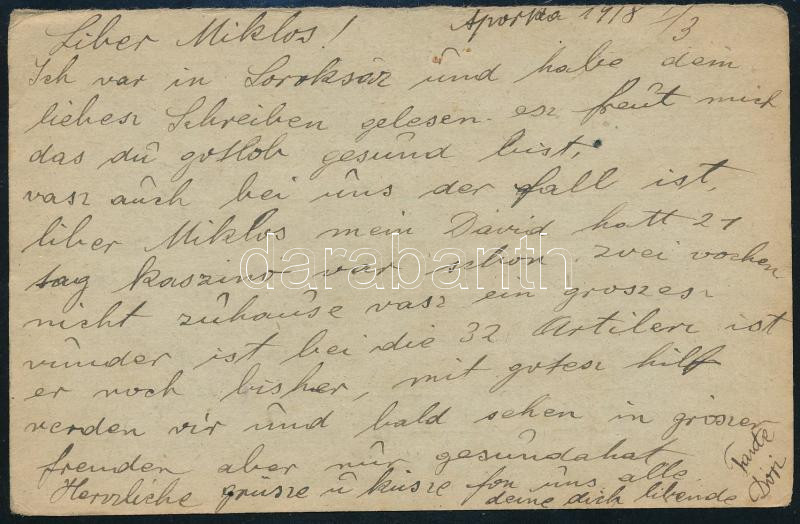 Aporka 1918 1/3
Liber Miklos!
Ich var in Soroksár und habe dein
liebesz Schreiben gelesen. esz freut mich
das du gotlob gesund bist,
vasz auch bei uns der fall ist,
liber Miklos mein David hatt 21
tag kaszino var schon zvei vochen
nicht zuhause vasz ein groszesz
vunder ist bei die 32 Artileri ist
er noch bisher, mit gotesz hilf
verden vir und bald sehen in groszer
freuden aber nur gesundahat
Herzliche grüsze u küsze fon uns alle
deine dich libende
Tante
Dori
darabanth